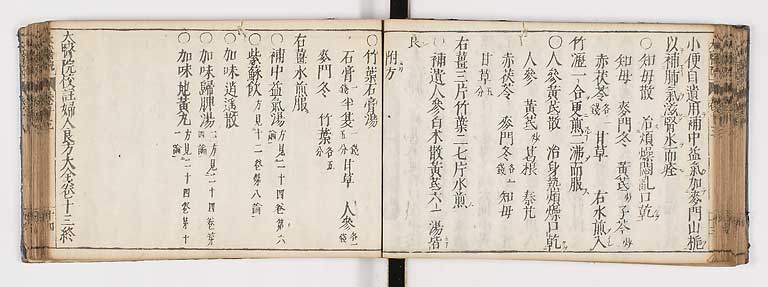 小便自遺用補中益氣加麥門山梔
以補肺氣滋腎水而痊
〇知母散 治煩燥悶亂口乾
知母 麥門冬 黃芪炒 子芩炒
赤茯苓各一錢 甘草 右水煎入
竹瀝一合更煎二沸而服
〇人參黃芪散 治身熱煩燥口乾
人參 黃芪炒 葛根 秦艽
赤茯苓 麥門冬各一錢 知母
甘草五分
右薑三片竹葉二七片水煎
補遺人參白朮散黃芪六一湯皆
良
附方
〇竹葉石膏湯
石膏一錢 半夏一錢五分 甘草 人參各一錢
麥門冬 竹葉各五分
右薑水煎服
〇補中益氣湯方見二十四卷第六論
〇紫蘇飲方見十二卷第八論
〇加味逍遙散
〇加味歸脾湯二方見二十四卷第四論
〇加味地黃丸方見二十四卷第十論
太醫院校註婦人良方大全卷十三終